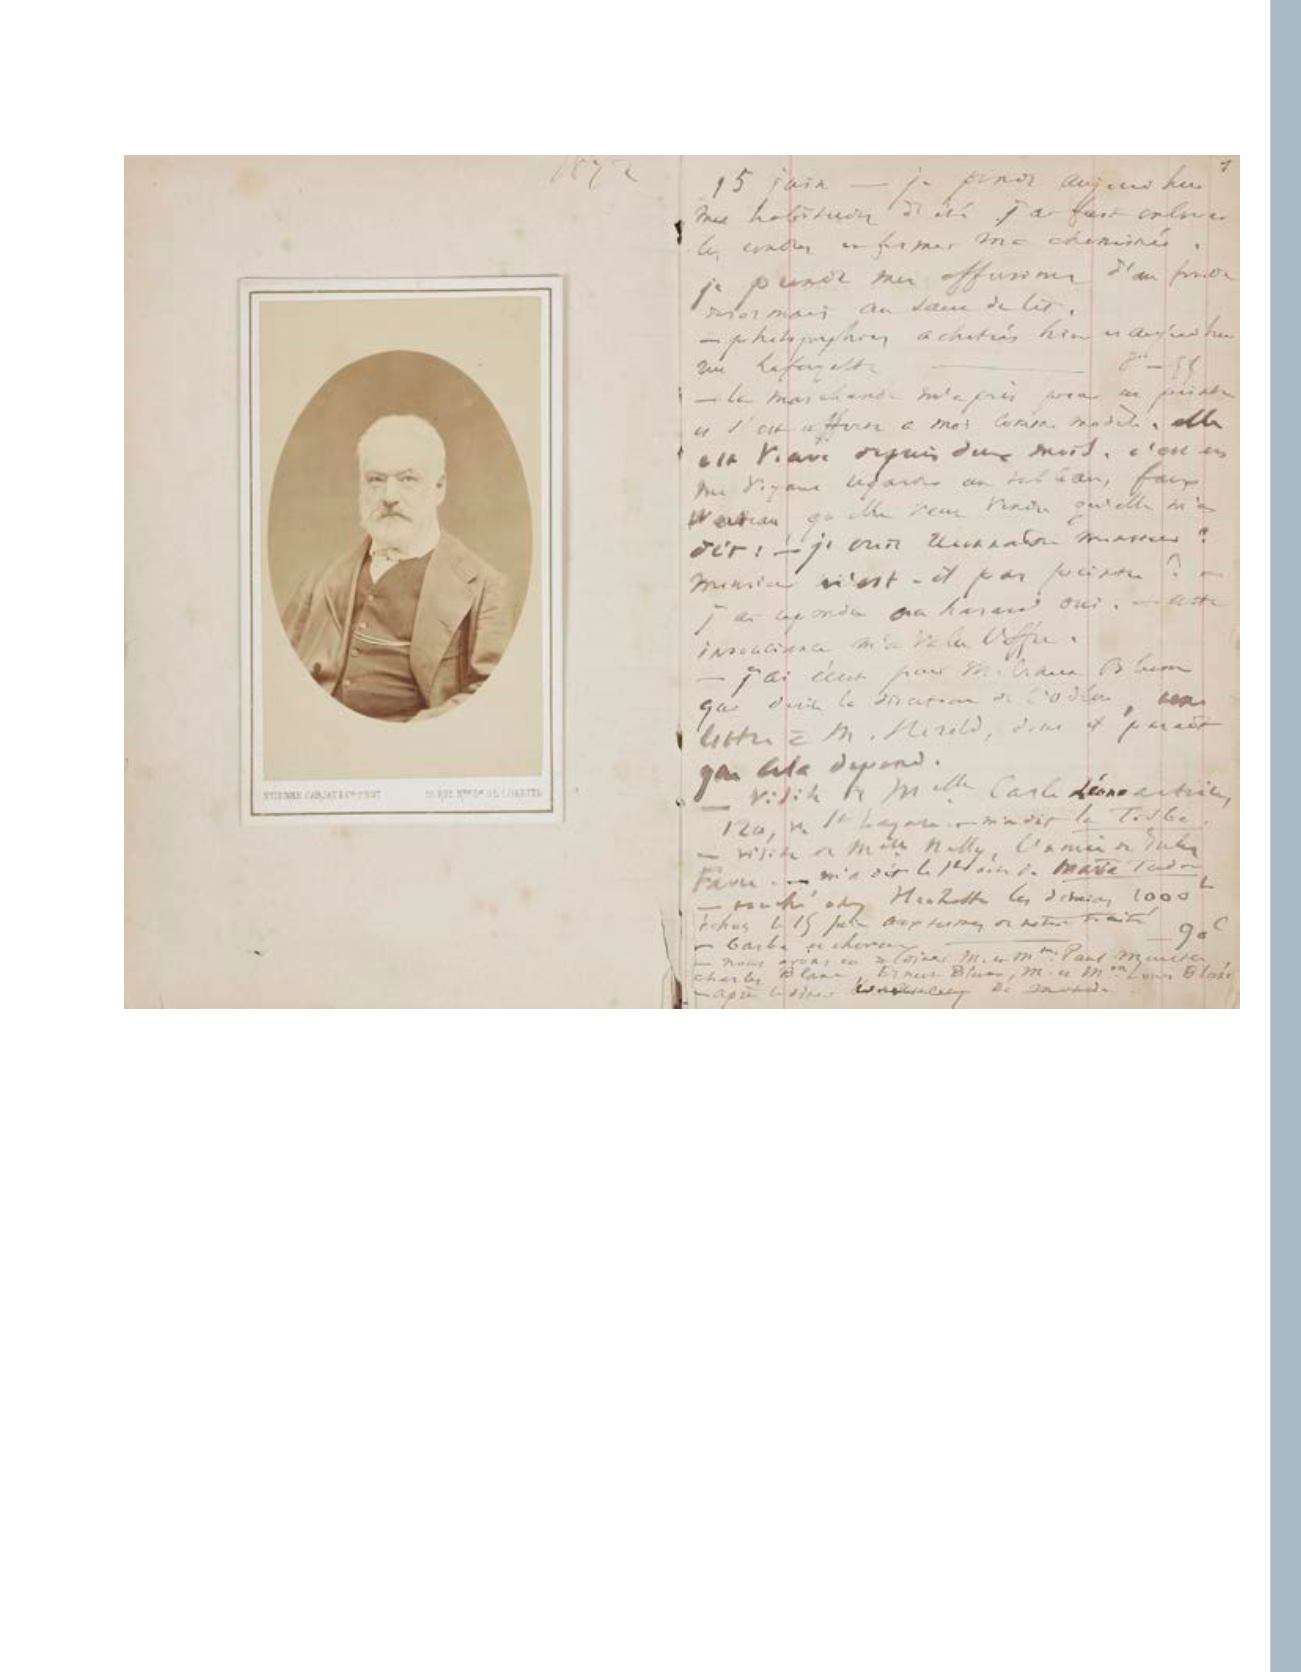 1872
ETIENNE CARJAT & Cie PHOT
1
15 juin — je prends aujourd'hui
mes habitudes d'été. j'ai fait enlever
les cendres et fermer ma cheminée.
je prends mes affusions d'eau froide
désormais au saut du lit.
— photographies achetées hier et aujourd'hui
rue Lafayette
— la marchande m'a pris pour un peintre
et s'est offerte à moi comme modèle. elle
est veuve depuis deux mois. c'est en
me voyant regarder un tableau, faux
Watteau qu'elle veut vendre qu'elle m'a
dit: — je crois reconnaître monsieur?
monsieur n'est-il pas peintre? —
j'ai répondu au hasard oui. — cette
insouciance m'a valu l'offre.
— j'ai écrit pour M. Blum
qui désire la direction de l'Odéon, une
lettre à M. Hérold, dont il paraît
que cela dépend.
— visite de Melle artiste,
120, r. St Lazare. — m'a dit la Tisbe.
— visite de Melle Nelly, l'amie de Jules
Favre. — m'a dit le 1er acte de Marie Tudor
— touché chez les derniers 1000
échus le 15 juin aux termes de notre traité
— barbe et cheveux — 90c
— nous avons eu à dîner M. et Mme Paul Meurice
Charles Blanc, Ernest Blum, M. et Mme Louis Blanc
— après le dîner de monde